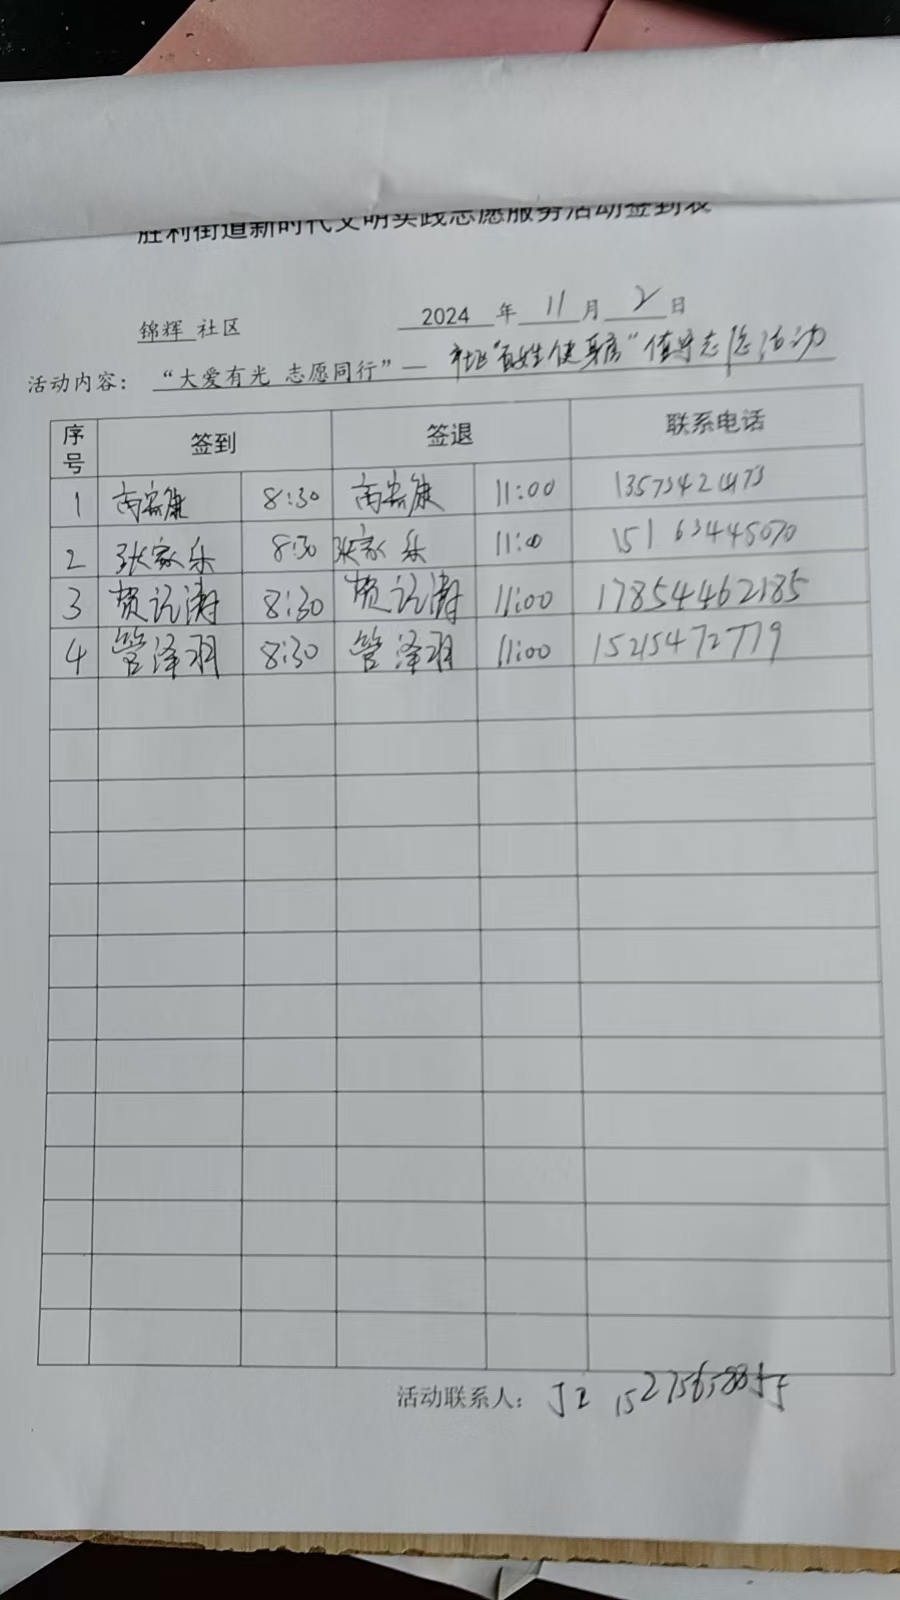 胜利街道新时代文明实践志愿服务活动签到表
锦辉 社区 2024 年 11 月 2 日
活动内容：“大爱有光 志愿同行”— 社区“百姓健身房”值守志愿活动
序号 签到 签退 联系电话
1 8:30 11:00
2 张家乐 8:30 张家乐 11:00 15163445070
3 贺记澍 8:30 贺记澍 11:00 17854462185
4 管泽羽 8:30 管泽羽 11:00 15215472779
活动联系人：